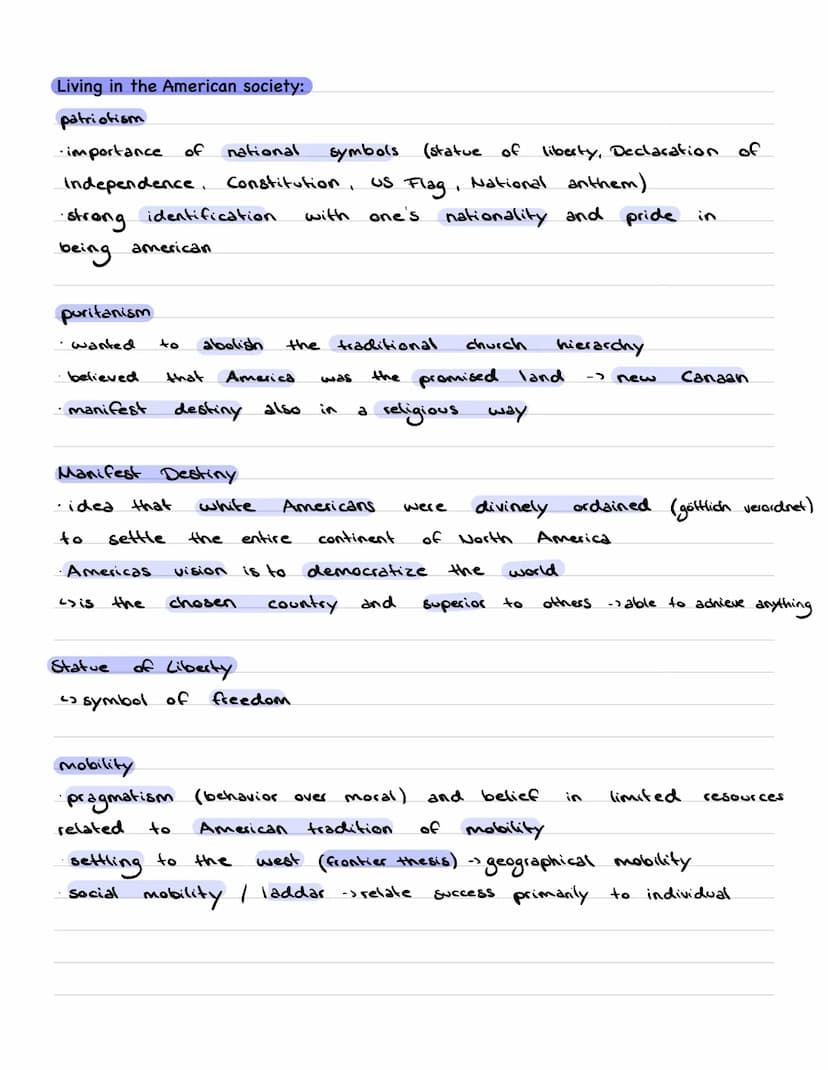 Living in the American society:
patriotism
· importance of national symbols (statue of liberty, Declaration of
Independence, Constitution, US Flag, National anthem)
· strong identification with one's nationality and pride in
being american
puritanism
· wanted to abolish the traditional church hierarchy
· believed that America was the promised land -> new Canaan
· manifest destiny also in a religious way
Manifest Destiny
· idea that white Americans were divinely ordained (göttlich verordnet)
to settle the entire continent of North America
· Americas vision is to democratize the world
↳ is the chosen country and superior to others -> able to achieve anything
Statue of Liberty
↳ symbol of freedom
mobility
· pragmatism (behavior over moral) and belief in limited resources
related to American tradition of mobility
· settling to the west (frontier thesis) -> geographical mobility
· social mobility / laddar -> relate success primarily to individual